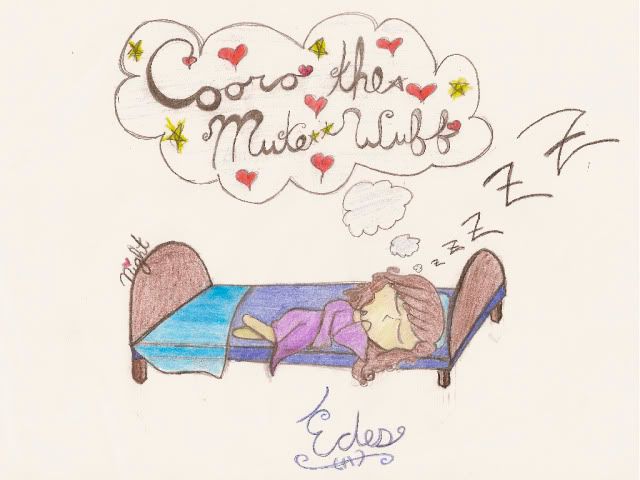 Cooro the
Mute Wuff
Z Z Z Z Z Z
Night
Edes